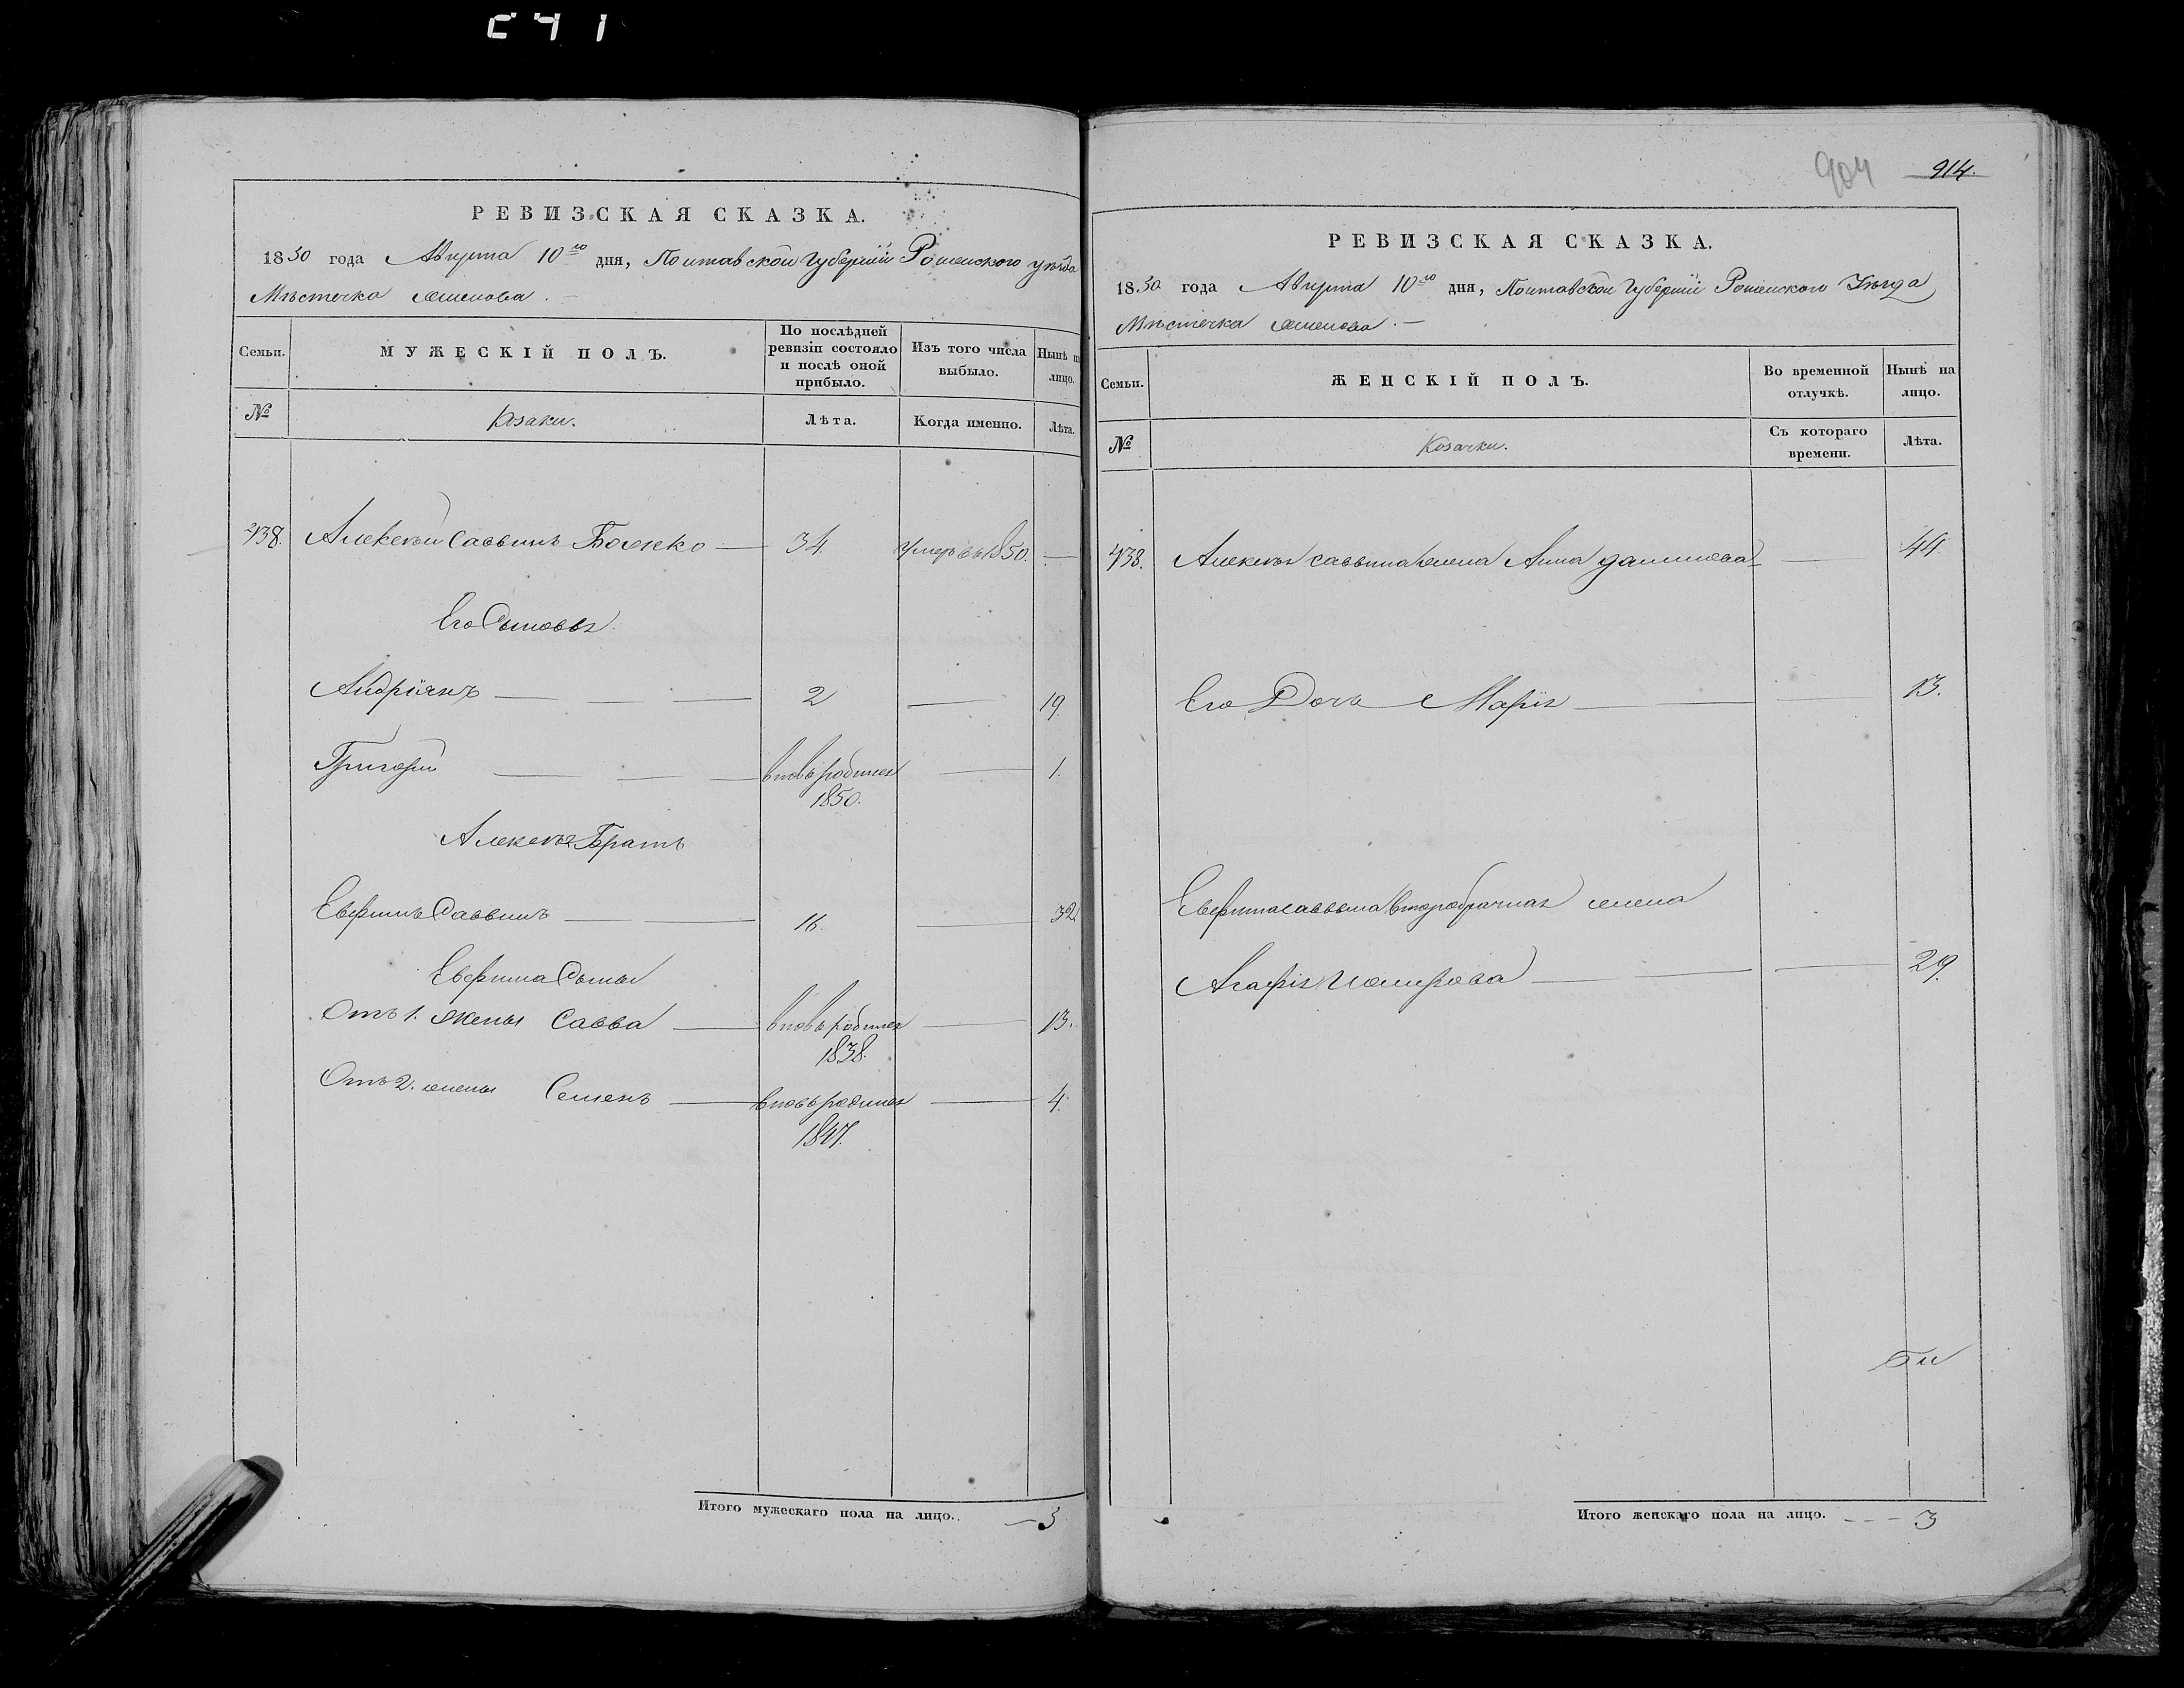 С41
РЕВИЗСКАЯ СКАЗКА.
1850 года Августа 10го дня, Полтавской Губерніи Роменского уѣзда
Мѣстечка
Семьи.
МУЖЕСКІЙ ПОЛЪ.
По послѣдней ревизіи состояло и послѣ оной прибыло.
Изъ того числа выбыло.
Нынѣ на лицо.
№
Козаки.
Лѣта.
Когда именно.
Лѣта.
438. Алексѣй Саввинъ Божко — 34. Умеръ въ 1850. —
Его Сыновья
Андріянъ — 2 — 19.
Григорій — вновьродился — 1.
1850.
Алексѣя Братъ
Евфимъ Саввинъ — 16. — 32
Евфима Сыны
Отъ 1. жены Савва — вновьродился — 13.
1838.
Отъ 2. жены Семенъ — вновьродился — 4.
1847.
Итого мужескаго пола на лицо. — 3
904 914.
РЕВИЗСКАЯ СКАЗКА.
1850 года Августа 10го дня, Полтавской Губерніи Роменского Уѣзда
Мѣстечка
Семьи.
ЖЕНСКІЙ ПОЛЪ.
Во временной отлучкѣ.
Нынѣ на лицо.
№
Козачки.
Съ котораго времени.
Лѣта.
438. Алексѣя Саввина жена Анна — 44.
Его Дочь Марія — 13.
Евфима Саввына второбрачная жена
Агафія — 29.
Итого женскаго пола на лицо. - - - 3